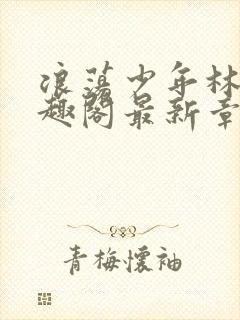 浪荡少年林
趣阁最新章
青梅懷袖